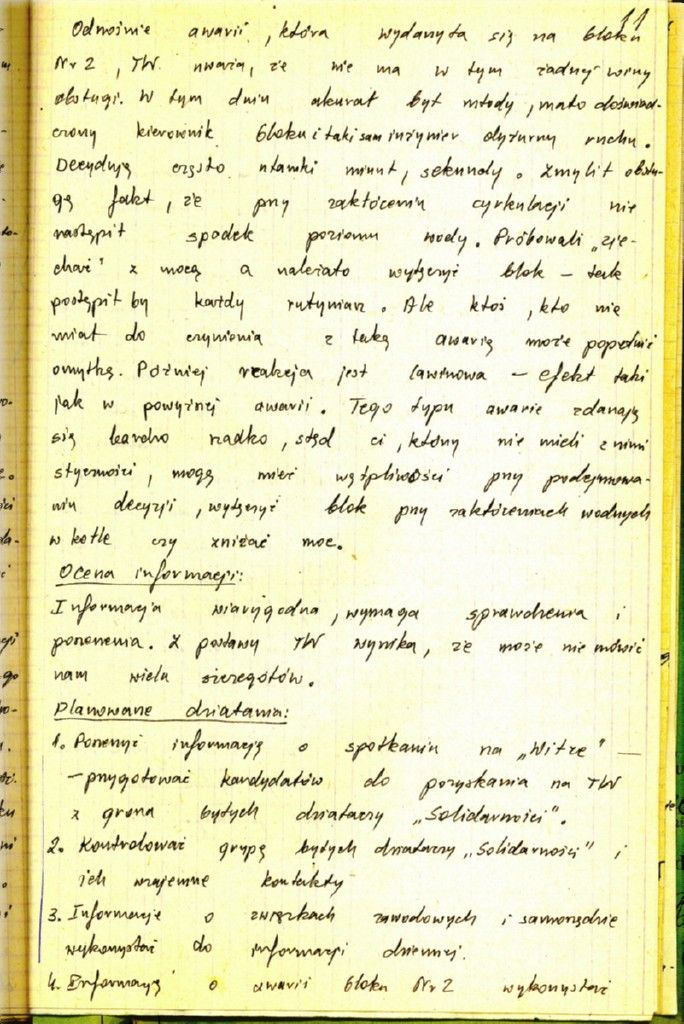 11
Odnośnie awarii, która wydarzyła się na bloku
Nr 2, TW. uważa, że nie ma w tym żadnej winy
obsługi. W tym dniu akurat był młody, mało doświad-
czony kierownik bloku i taki sam inżynier dyżurny ruchu.
Decydują często ułamki minut, sekundy. Zmylił obsłu-
gę fakt, że przy zakłóceniu cyrkulacji nie
nastąpił spadek poziomu wody. Próbowali „zje-
chać" z mocą a należało wyłączyć blok – tak
postąpił by każdy rutyniarz. Ale ktoś, kto nie
miał do czynienia z taką awarią może popełnić
omyłkę. Później reakcja jest lawinowa – efekt taki
jak w powyższej awarii. Tego typu awarie zdarzają
się bardzo rzadko, stąd ci, którzy nie mieli z nimi
styczności, mogą mieć wątpliwości przy podejmowa-
niu decyzji, wyłączyć blok przy zakłóceniach wodnych
w kotle czy zniżać moc.
Ocena informacji:
Informacja wiarygodna, wymaga sprawdzenia i
poszerzenia. Z postawy TW wynika, że może nie mówić
nam wielu szczegółów.
Planowane działania:
1. Poszerzyć informację o spotkaniu na „Witze" —
– przygotować kandydatów do pozyskania na TW
z grona byłych działaczy „Solidarności".
2. Kontrolować grupę byłych działaczy „Solidarności" i
ich wzajemne kontakty
3. Informacje o związkach zawodowych i samorządzie
wykorzystać do informacji dziennej.
4. Informację o awarii bloku Nr 2 wykorzystać